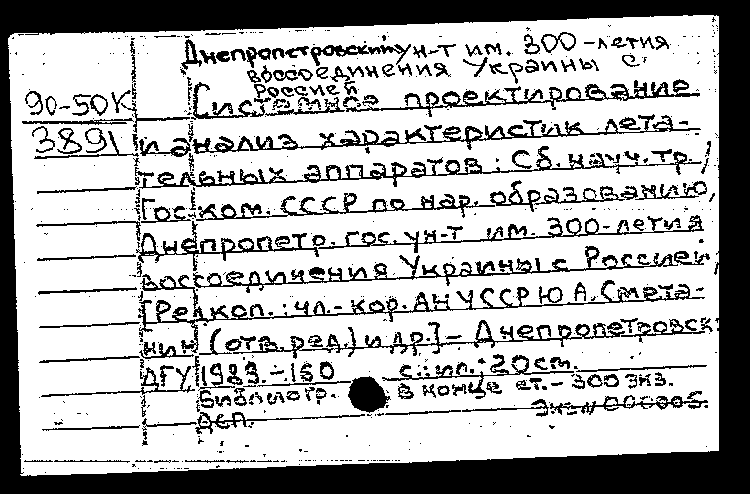 Днепропетровский ун-т им. 300-летия
воссоединения Украины с
Россией
90-50К Системное проектирование
3891 и анализ характеристик лета-
тельных аппаратов: Сб. науч. тр. /
Гос. ком. СССР по нар. образованию,
Днепропетр. гос. ун-т им. 300-летия
воссоединения Украины с Россией;
[Редкол.: чл.-кор. АН УССР Ю.А. Смета-
нин (отв. ред.) и др.] - Днепропетровск:
ДГУ, 1989. - 150 с.: ил.; 20 см.
Библиогр. в конце ст. - 300 экз.
Экз N 000005.
ДСП.